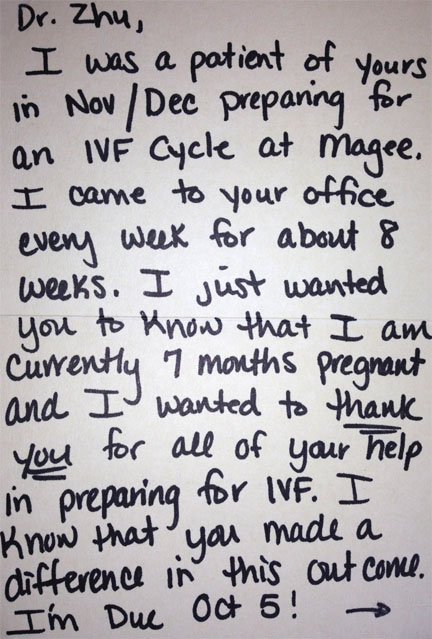 Dr. Zhu,
I was a patient of yours
in Nov/Dec preparing for
an IVF Cycle at Magee.
I came to your office
every week for about 8
weeks. I just wanted
you to know that I am
currently 7 months pregnant
and I wanted to thank
you for all of your help
in preparing for IVF. I
know that you made a
difference in this outcome.
I'm Due Oct 5! →